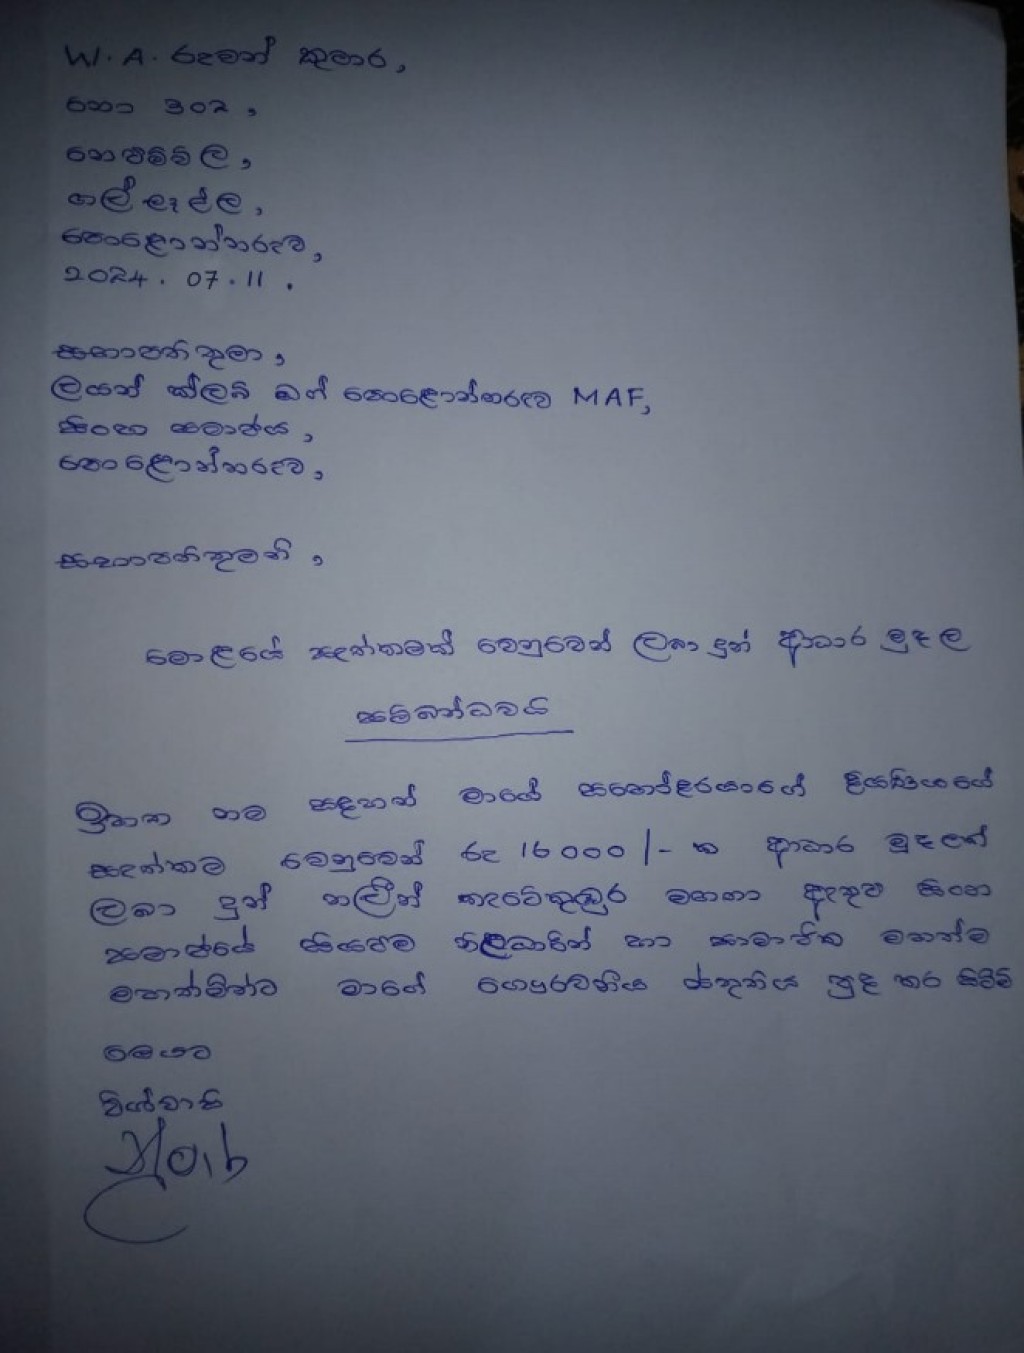 W.A. රුවන් කුමාර,
නො 302,
ගල් ඇල්ල,
පොළොන්නරුව,
2024.07.11.
සභාපතිතුමා,
ලයන් ක්ලබ් ඔෆ් පොළොන්නරුව MAF,
සිංහ සමාජය,
පොළොන්නරුව,
සභාපතිතුමනි,
මොළයේ සැත්කමක් වෙනුවෙන් ලබා දුන් ආධාර මුදල
සම්බන්ධවයි
ඉහත නම සඳහන් මාගේ සහෝදරයාගේ දියණියගේ
සැත්කම වෙනුවෙන් රු 16000/- ක ආධාර මුදලක්
ලබා දුන් නලීන් කැටේකුඹුර මහතා ඇතුළු සිංහ
සමාජයේ සියළුම නිළධාරීන් හා සාමාජික මහත්ම
මහත්මීන්ට මාගේ ගෞරවනීය ස්තුතිය පුද කර සිටිමි
මෙයට
විශ්වාසි